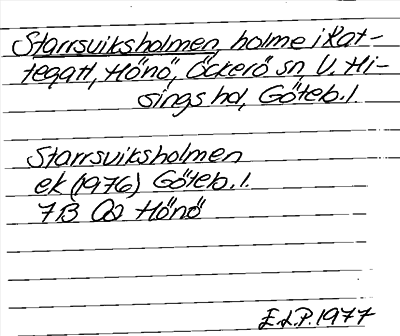 Starrsviksholmen, holme i Kat-
tegatt, Hönö, Öckerö sn, V. Hi-
sings hd, Göteb. l.
Starrsviksholmen
ek (1976) Göteb. l.
7B 0a Hönö
E.L.P. 1977